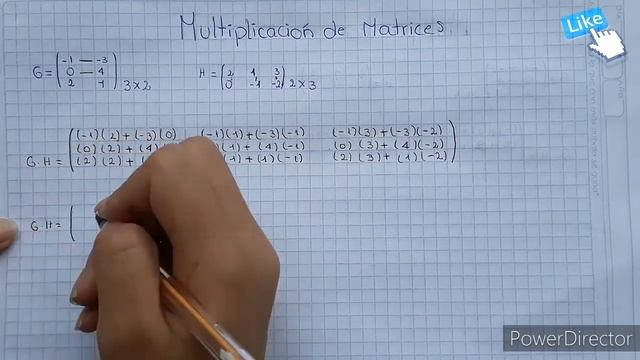 Multiplicación de Matrices.
Like
G = ( -1 — -3
0 — 4
2 1 ) 3x2
H = ( 2 1 3
0 -1 -2 ) 2x3
(-1)(2)+(-3)(0) (-1)(1)+(-3)(-1) (-1)(3)+(-3)(-2)
G.H = (0)(2)+(4) )(1)+(4)(-1) (0)(3)+(4)(-2)
(2)(2)+( (1)+(1)(-1) (2)(3)+(1)(-2)
G.H = (
PowerDirector